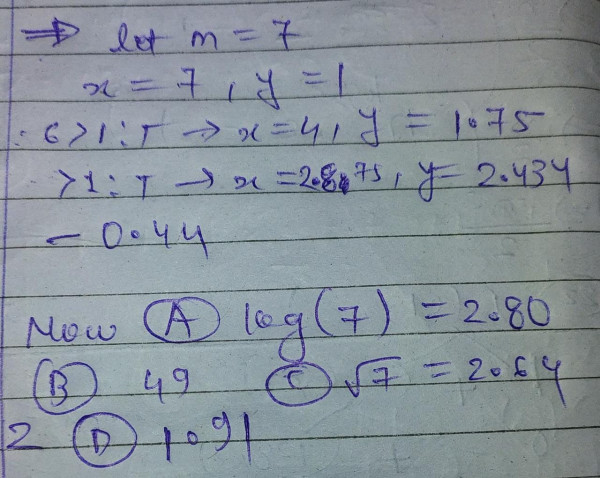 ⇒ let m = 7
x = 7, y = 1
: 6 > 1 : T → x = 4, y = 1.75
> 1 : T → x = 2.875, y = 2.434
- 0.44
Now (A) log(7) = 2.80
(B) 49 (C) √7 = 2.64
2 (D) 1.91